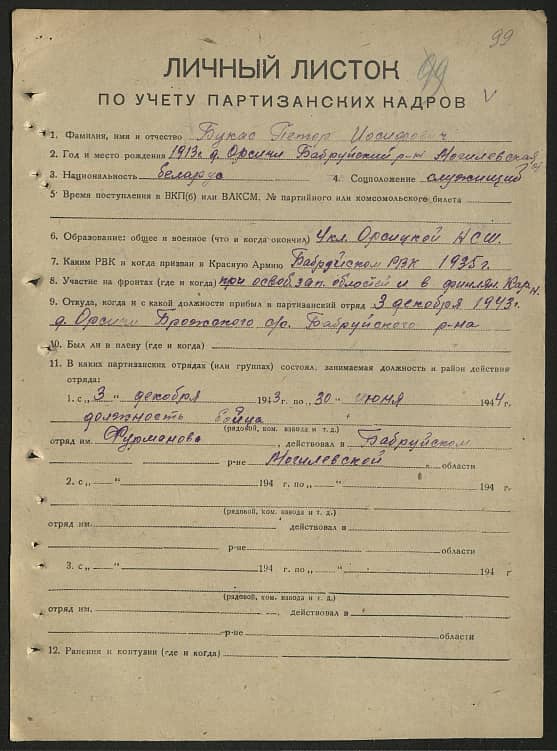 99
99
ЛИЧНЫЙ ЛИСТОК
ПО УЧЕТУ ПАРТИЗАНСКИХ КАДРОВ
1. Фамилия, имя и отчество Букас Петр Иосифович
2. Год и место рождения 1913 г. д. Орсичи Бабруйский р-н Могилевская
3. Национальность беларус 4. Соцположение служищий
5 Время поступления в ВКП(б) или ВЛКСМ, № партийного или комсомольского билета
6. Образование: общее и военное (что и когда окончил) 4 кл. Орсицкой НСШ.
7. Каким РВК и когда призван в Красную Армию Бабруйском РВК 1935 г.
8. Участие на фронтах (где и когда) при освоб. зап. областей и в финлян. Кар
9. Откуда, когда и с какой должности прибыл в партизанский отряд 3 декабря 1943 г.
д. Орсичи Брожского с/с. Бабруйского р-на
10. Был ли в плену (где и когда)
11. В каких партизанских отрядах (или группах) состоял, занимаемая должность и район действия
отряда:
1. с „3“ декабря 1943 г. по „30“ июня 1944 г.
должность бойца
(рядовой, ком. взвода и т. д.)
отряд им. Фурманова, действовал в Бабруйском
р-не Могилевской области
2. с „ “ 194 г. по „ “ 194 г.
(рядовой, ком. взвода и т. д.)
отряд им. действовал в
р-не области
3. с „ “ 194 г. по „ “ 194 г
(рядовой, ком. взвода и т. д.)
отряд им. , действовал в
р-не области
12. Ранения и контузии (где и когда)